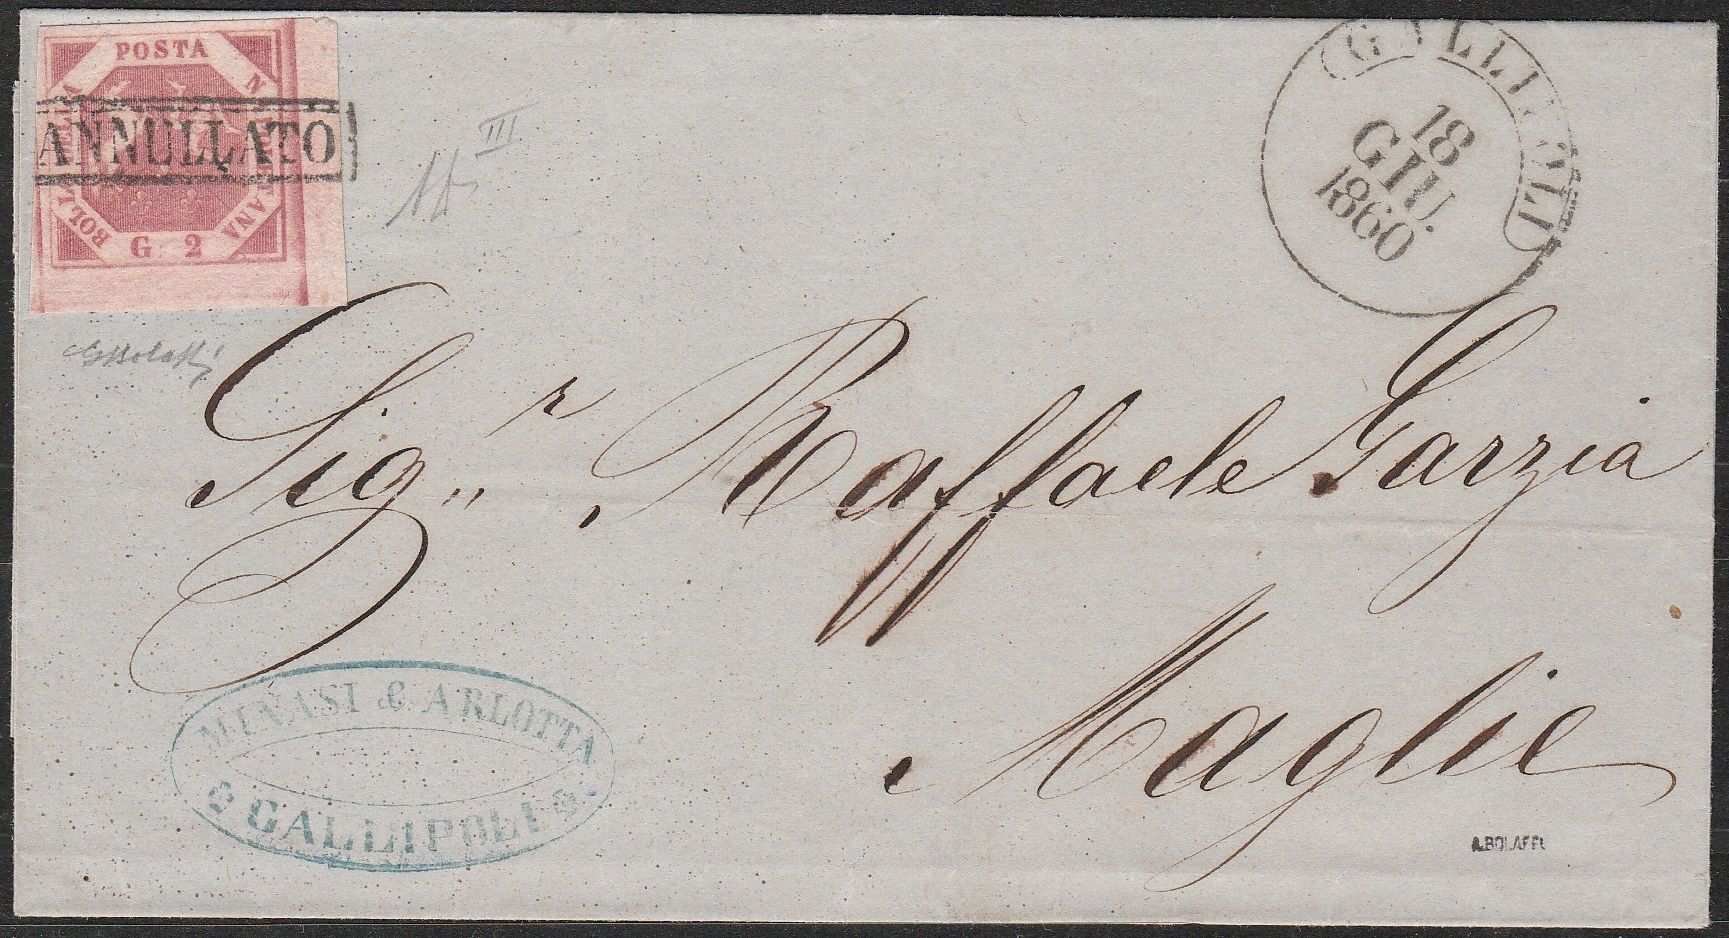 POSTA
NAPOLETANA
BOLLO DELLA
G. 2
ANNULLATO
III
GALLIPOLI
18
GIU.
1860
Sig.r Raffaele Garzia
Maglie
MINASI & ARLOTTA
GALLIPOLI
A.BOLAFFI